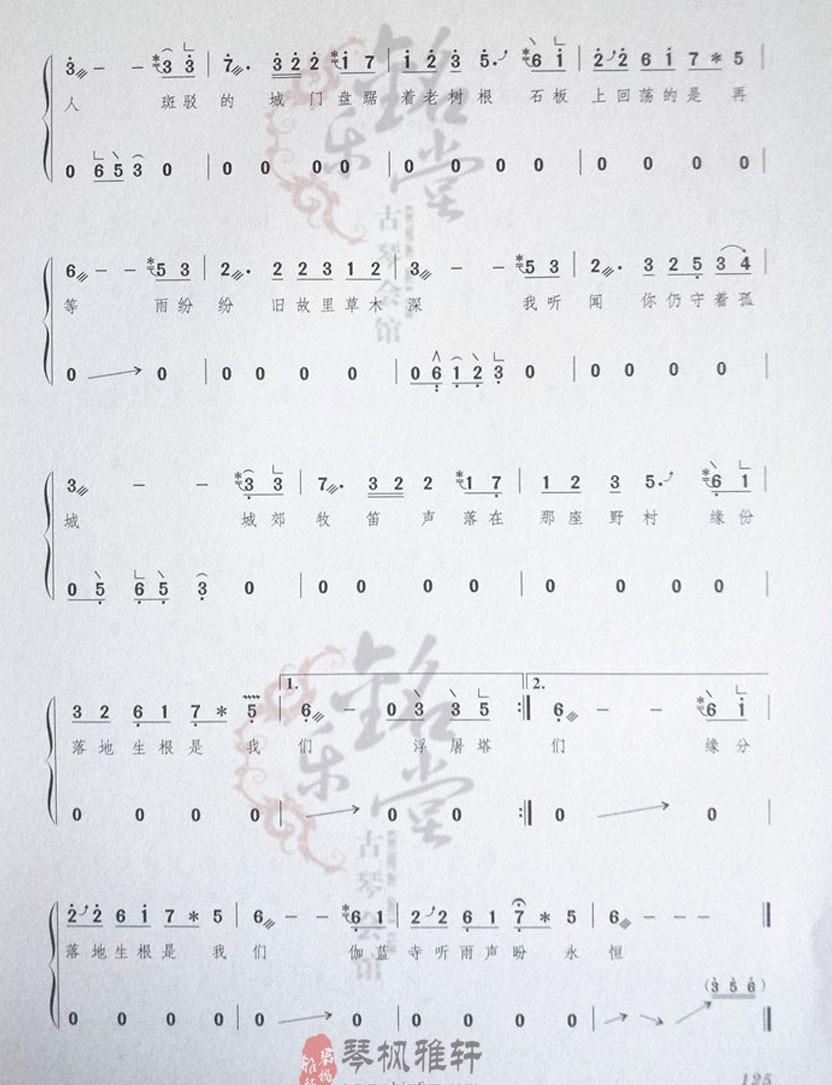 3 - - 3 3 | 7· 3 2 2 1 7 | 1 2 3 5· 6 1 | 2 2 6 1 7 * 5 |
人 斑驳 的 城 门 盘踞 着老树根 石板 上回荡的是 再
0 6 5 3 0 | 0 0 0 0 | 0 0 0 0 | 0 0 0 0 |
6 - - 5 3 | 2· 2 2 3 1 2 | 3 - - 5 3 | 2· 3 2 5 3 4 |
等 雨纷 纷 旧故里草木 深 我听 闻 你仍守着孤
0 0 | 0 0 0 0 | 0 6 1 2 3 0 | 0 0 0 0 |
3 - - 3 3 | 7· 3 2 2 1 7 | 1 2 3 5· 6 1 |
城 城郊 牧 笛 声 落在 那座野村 缘份
0 5 6 5 3 0 | 0 0 0 0 | 0 0 0 0 |
1. 2.
3 2 6 1 7 * 5 | 6 - 0 3 3 5 :| 6 - - 6 1 |
落地生根是 我 们 浮屠塔 们 缘分
0 0 0 0 | 0 0 0 :| 0 0 |
2 2 6 1 7 * 5 | 6 - - 6 1 | 2 2 6 1 7 * 5 | 6 - - ||
落地生根是 我 们 伽蓝 寺听雨声盼 永 恒
(3 5 6)
0 0 0 0 | 0 0 | 0 0 0 0 | 0 ||
铭乐堂
古琴会馆
铭乐堂
古琴会馆
琴枫雅轩
125